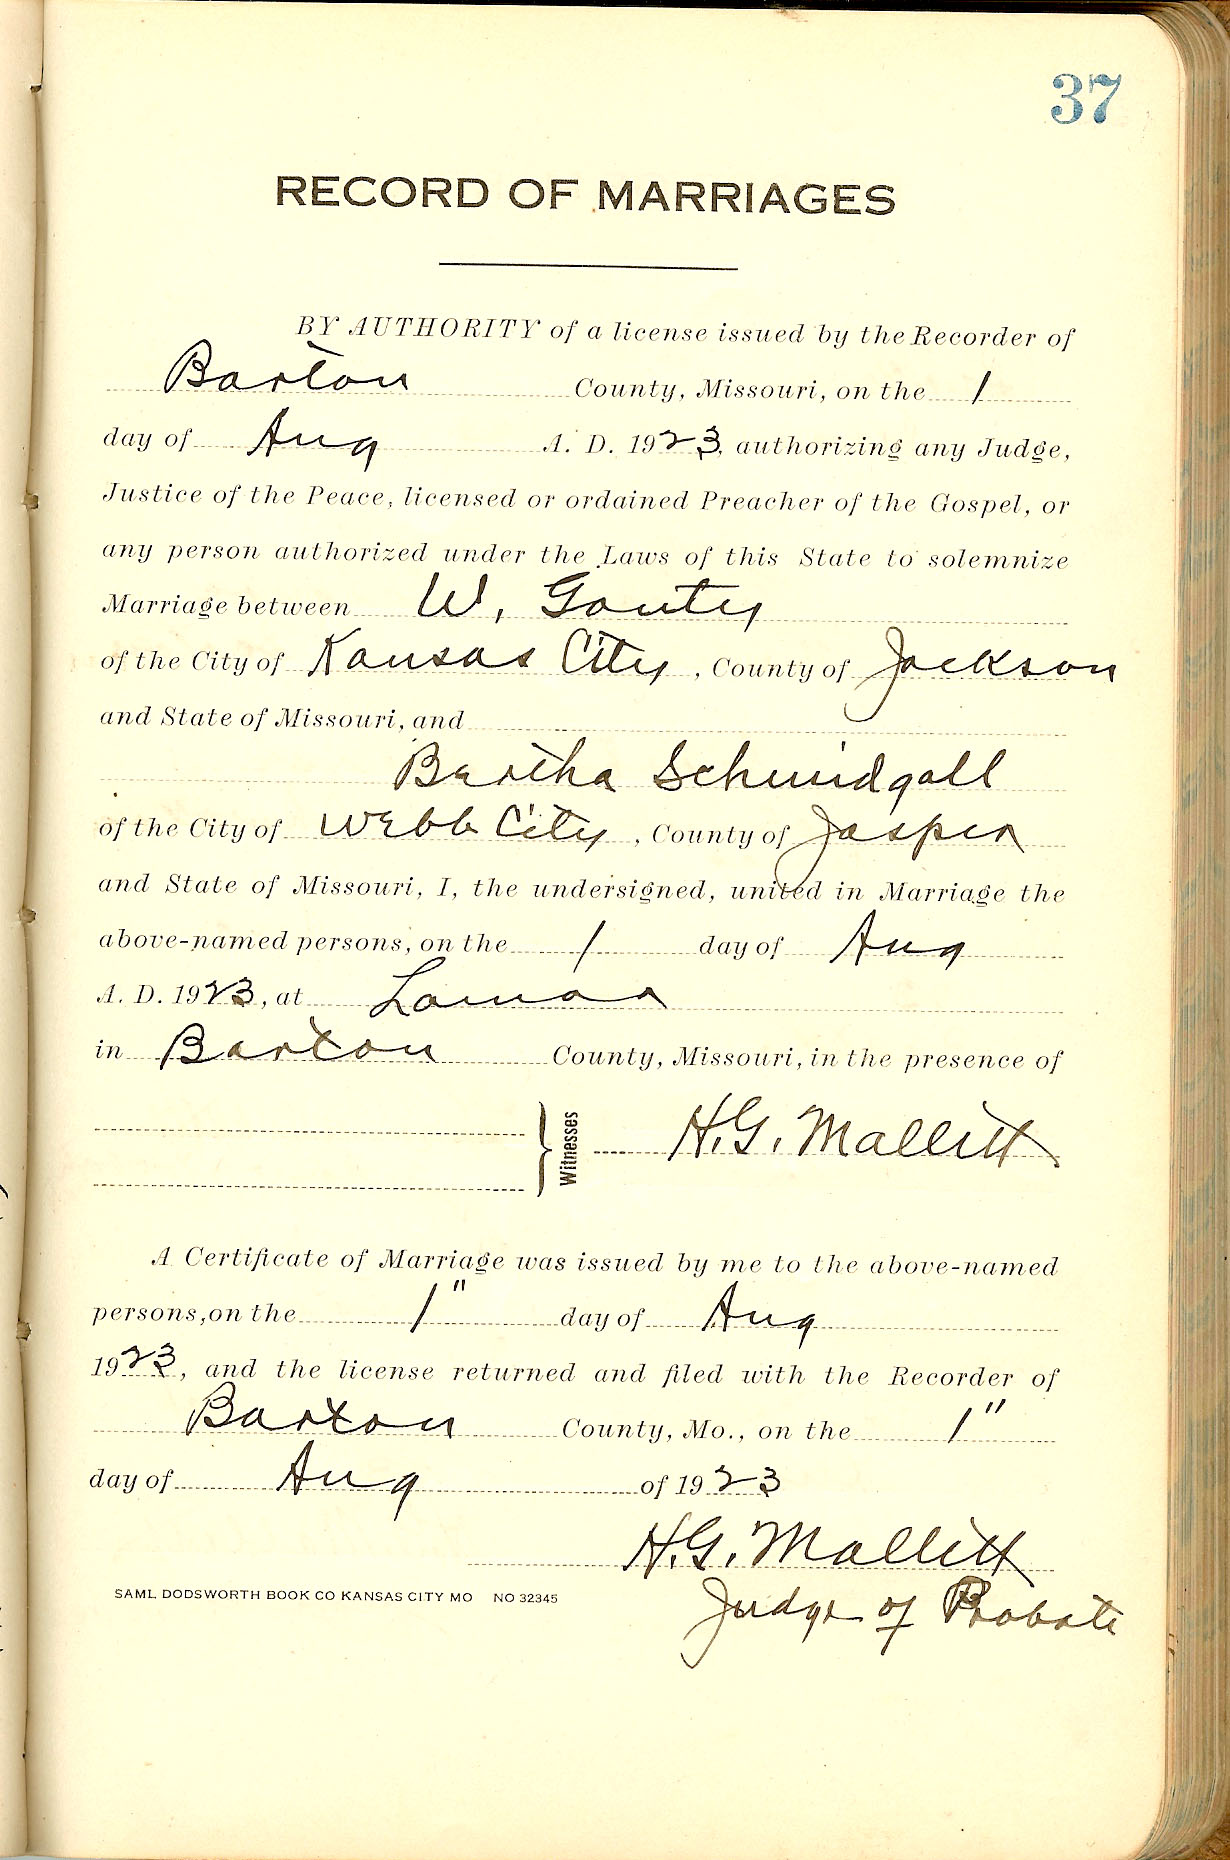 37
RECORD OF MARRIAGES
BY AUTHORITY of a license issued by the Recorder of
Barton County, Missouri, on the 1
day of Aug A. D. 1923, authorizing any Judge,
Justice of the Peace, licensed or ordained Preacher of the Gospel, or
any person authorized under the Laws of this State to solemnize
Marriage between W. Gouty
of the City of Kansas City, County of Jackson
and State of Missouri, and
Bertha Schmidgall
of the City of Webb City, County of Jasper
and State of Missouri, I, the undersigned, united in Marriage the
above-named persons, on the 1 day of Aug
A. D. 1923, at Lamar
in Barton County, Missouri, in the presence of
Witnesses H. G. Mallitt
A Certificate of Marriage was issued by me to the above-named
persons, on the 1" day of Aug
1923, and the license returned and filed with the Recorder of
Barton County, Mo., on the 1"
day of Aug of 1923
H. G. Mallitt
SAML DODSWORTH BOOK CO KANSAS CITY MO NO 32345
Judge of Probate